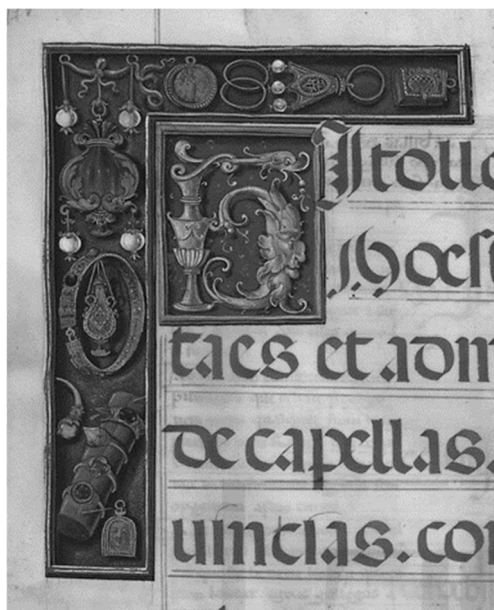 Itollo
.s. hoesp
taes et admi
de capellas.
uincias.con